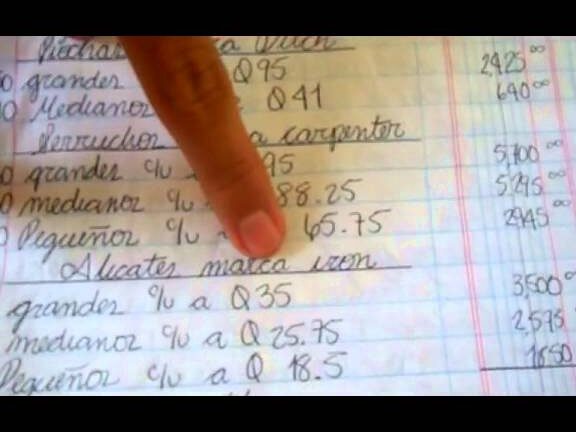 grandes Q95 2,425 00
Medianos Q41 640 00
Serruchos carpenter
grandes c/u 95 5,700 00
medianos c/u 88.25 5,295 00
Pequeños c/u a 65.75 2945 00
Alicates marca iron
grandes c/u a Q35 3,500 00
medianos c/u a Q25.75 2,575
Pequeños c/u a Q 18.5 1850